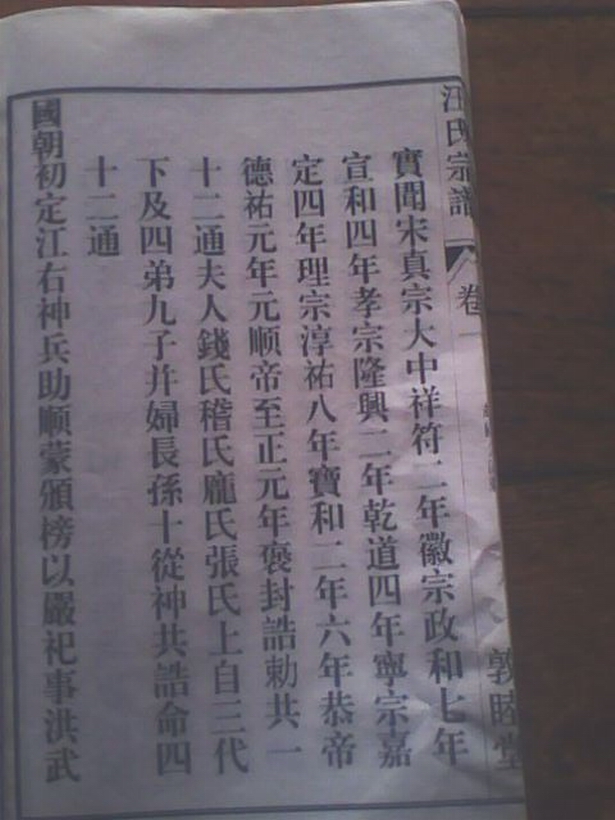 汪氏宗譜
卷一
敦睦堂
實聞宋真宗大中祥符二年徽宗政和七年
宣和四年孝宗隆興二年乾道四年寧宗嘉
定四年理宗淳祐八年寶和二年六年恭帝
德祐元年元順帝至正元年褒封誥勅共一
十二通夫人錢氏稽氏龐氏張氏上自三代
下及四弟九子并婦長孫十從神共誥命四
十二通
國朝初定江右神兵助順蒙頒榜以嚴祀事洪武